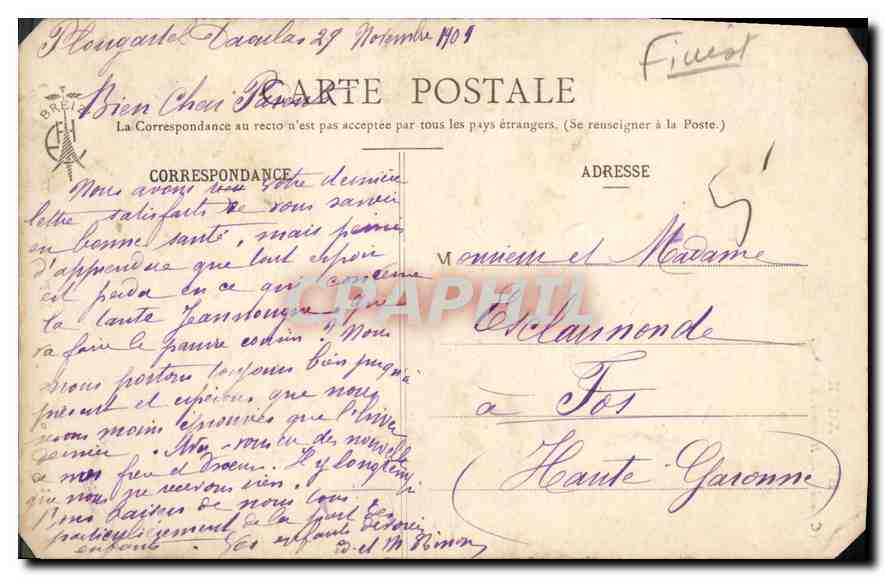 Plougastel Daoulas 29 Novembre 1909
Finist
Bien Cher Parents
CARTE POSTALE
BREIZ
La Correspondance au recto n'est pas acceptée par tous les pays étrangers. (Se renseigner à la Poste.)
CORRESPONDANCE
Nous avons votre dernière
lettre satisfaits de vous savoir
en bonne santé, mais peinés
d'apprendre que tout espoir
est perdu en ce qui concerne
la tante que
va faire le pauvre cousin? Nous
nous portons toujours bien jusqu'à
présent et espérons que nous
serons moins éprouvés que l'hiver
dernier. Avez-vous eu des nouvelles
de mes frère et soeur. Il y longtemps
que nous ne recevons rien.
baisers de nous tous
particulièrement de la part des
enfants. Vos enfants dévoués
et M
ADRESSE
5
Monsieur et Madame
Esclarmonde
à Fos
(Haute Garonne)
CPAPHIL